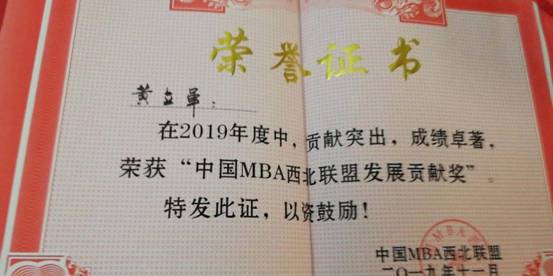 荣誉证书
黄立军：
在2019年度中，贡献突出，成绩卓著，
荣获“中国MBA西北联盟发展贡献奖”。
特发此证，以资鼓励！
中国MBA西北联盟
二〇一九年十一月